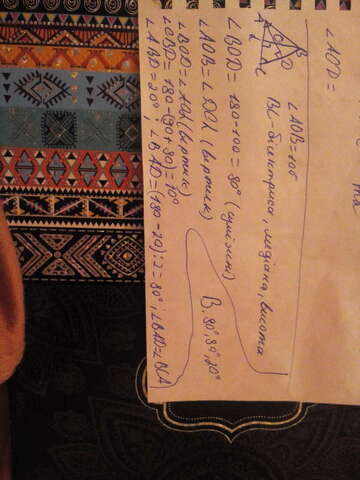 ∠AOD =
A B C D O
∠AOB = 100
BL - бісектриса, медіана, висота
∠BOD = 180 - 100 = 80° (суміжні)
∠AOB = ∠DOL (вертик)
∠BOD = ∠AOL (вертик)
∠OBD = 180 - (90 + 80) = 10°
∠ABD = 20° ; ∠BAD = (180 - 20) : 2 = 80° ; ∠BAD = ∠BCA
В. 80°, 80°, 20°